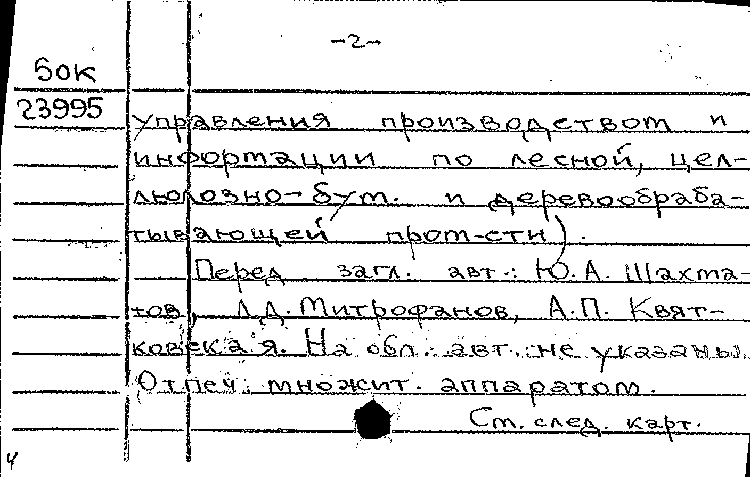 -2-
Бок
23995
управления производством и
информации по лесной, цел-
люлозно-бум. и деревообраба-
тывающей пром-сти).
Перед загл. авт.: Ю.А. Шахма-
тов, Л.Д. Митрофанов, А.П. Квят-
ковская. На обл. авт. не указаны.
Отпеч. множит. аппаратом.
См. след. карт.
4